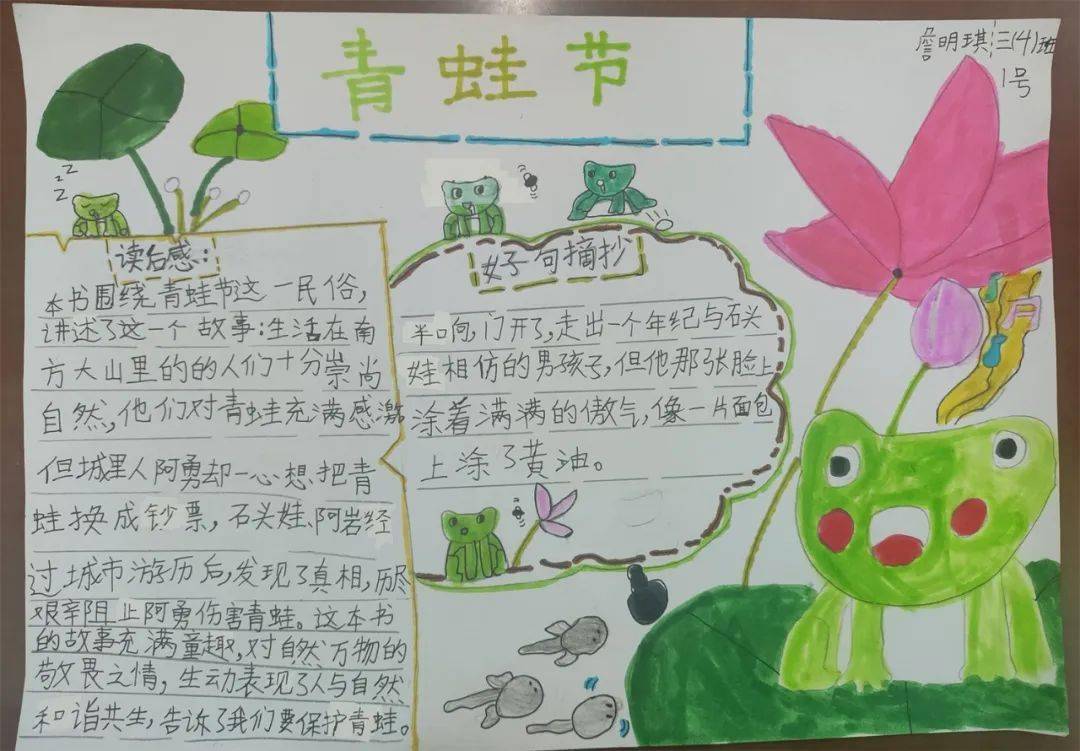 青蛙节
詹明琪 三(4)班
1号
读后感:
本书围绕青蛙节这一民俗,
讲述了这一个故事:生活在南
方大山里的的人们十分崇尚
自然,他们对青蛙充满感激
但城里人阿勇却一心想把青
蛙换成钞票,石头娃、阿岩经
过城市游历后,发现了真相,历尽
艰辛阻止阿勇伤害青蛙。这本书
的故事充满童趣,对自然万物的
敬畏之情,生动表现了人与自然
和谐共生,告诉了我们要保护青蛙。
好句摘抄
半响,门开了,走出一个年纪与石头
娃相仿的男孩子,但他那张脸上
涂着满满的傲气,像一片面包
上涂了黄油。
zzz